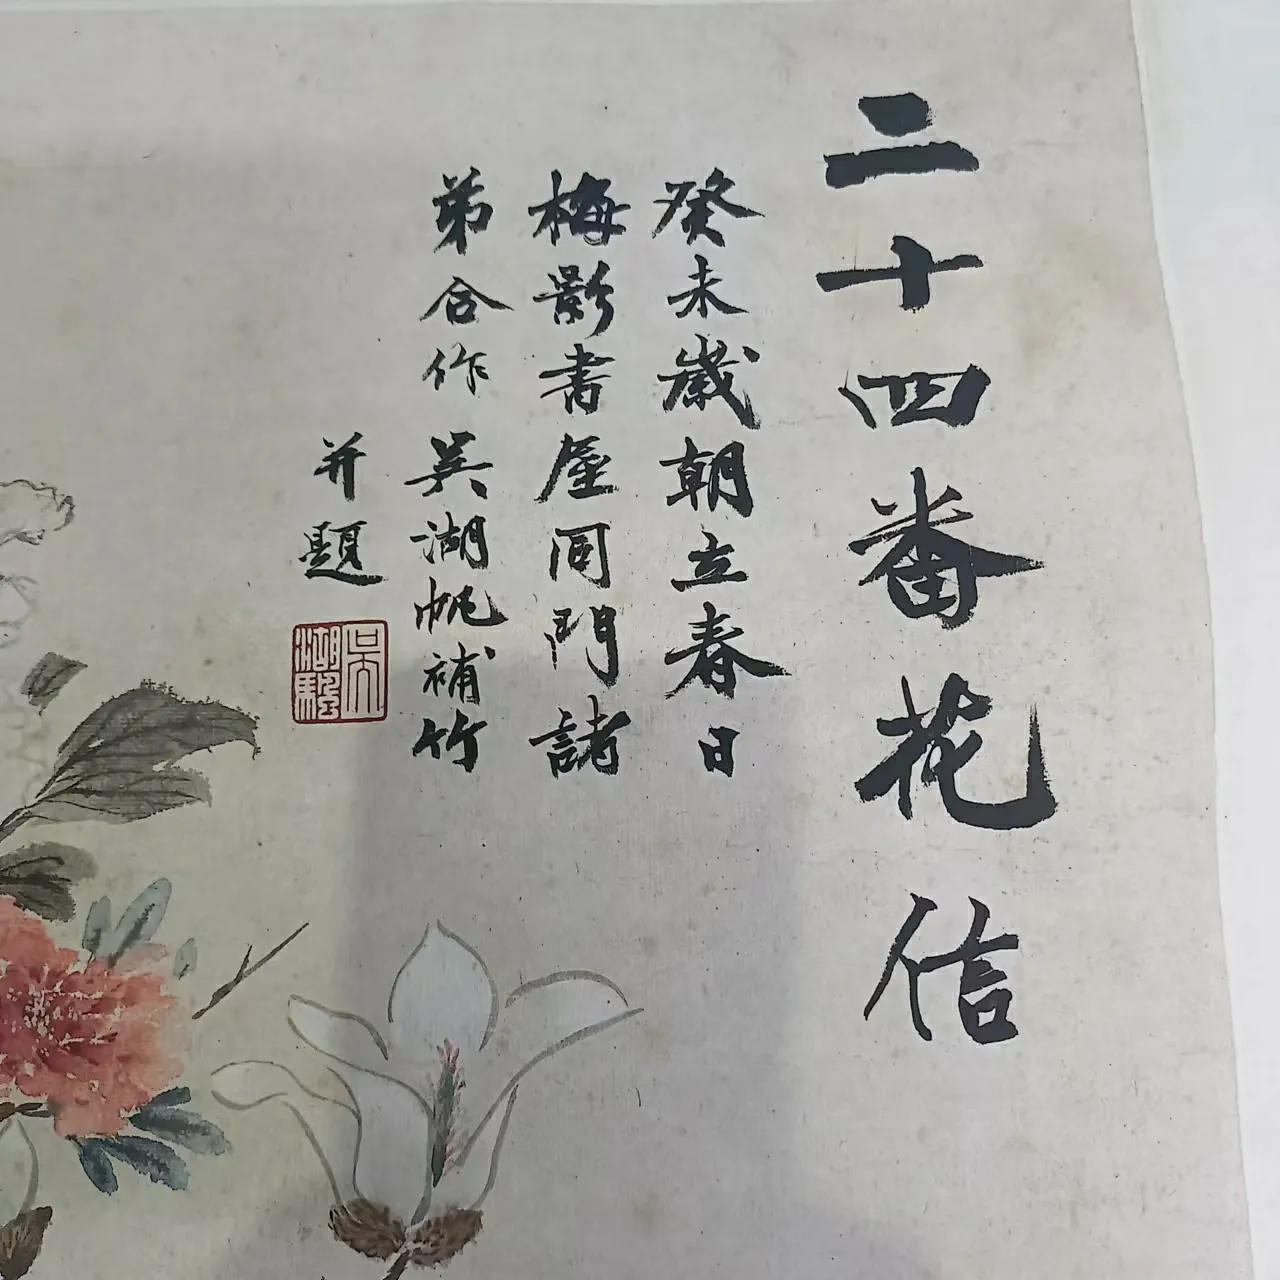 二十四番花信
癸未歲朝立春日
梅影書屋同門諸
弟合作吳湖帆補竹
并題
吳湖驄